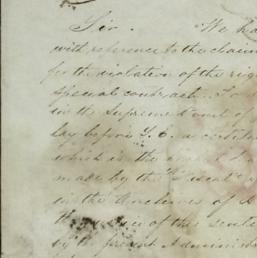 Sir. We ha
with reference to the claim
for the violation of the rig
special contract.
in the Supreme Court of
lay before
which is the
made by the "Fiscal"
in the Archives of
the of this sente
by the present Adminis